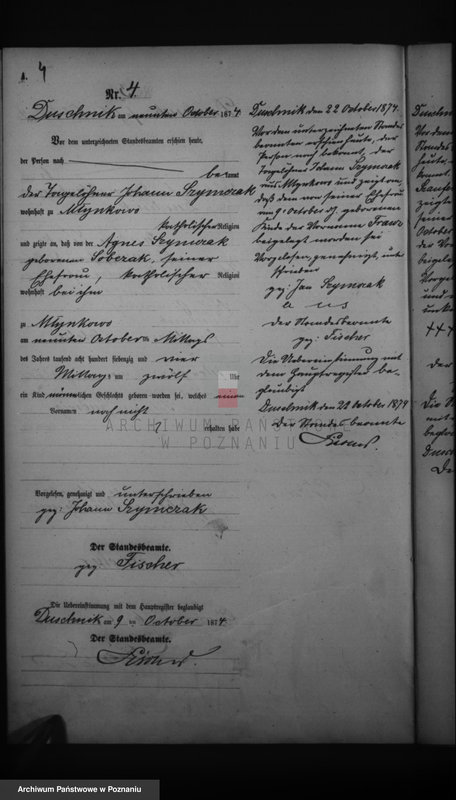 A. 4
Nr. 4
Duschnik am neunten October 1874
Vor dem unterzeichneten Standesbeamten erschien heute,
der Person nach
bekannt
der Tagelöhner Johann Szymczak
wohnhaft zu Młynkowo
katholischer Religion
und zeigte an, daß von der Agnes Szymczak
geborenen Sobczak, seiner
Ehefrau, katholischer Religion
wohnhaft bei ihm
zu Młynkowo
am neunten October Mittags
des Jahres tausend acht hundert siebenzig und vier
Mittags um zwölf Uhr
ein Kind männlichen Geschlechts geboren worden sei, welches einen
Vornamen noch nicht
erhalten habe
Vorgelesen, genehmigt und unterschrieben
gez: Johann Szymczak
Der Standesbeamte.
gez Fischer
Die Uebereinstimmung mit dem Hauptregister beglaubigt
Duschnik am 9 ten October 1874
Der Standesbeamte.
Duschnik den 22 October 1874.
Vor dem unterzeichneten Standes
beamten erschien heute, der
Person nach bekannt, der
Tagelöhner Johann Szymczak
aus Młynkowo und zeigte an,
daß dem von seiner Ehefrau
am 9 October cr. geborenen
Kinde der Vorname Franz
beigelegt worden sei
Vorgelesen, genehmigt, unter
schrieben
gez: Jan Szymczak
Der Standesbeamte
gez: Fischer
Die Uebereinstimmung mit
dem Hauptregister be-
glaubigt
Duschnik den 22 October 1874
Der Standesbeamte
ARCHIWUM PAŃSTWOWE
W POZNANIU
Archiwum Państwowe w Poznaniu